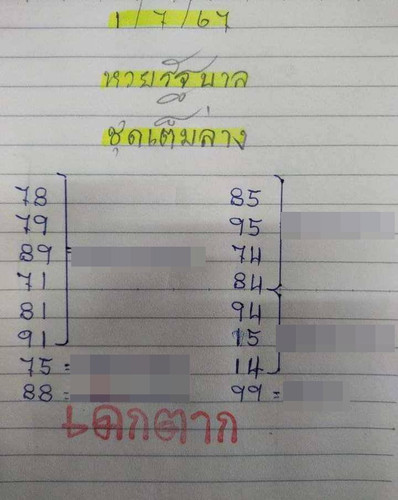 1/7/67
หวยรัฐบาล
ชุดเต็มล่าง
78
79
89 =
71
81
91
75 =
88 =
85
95
74
84
94
15
14
99 =
เด็กตาก